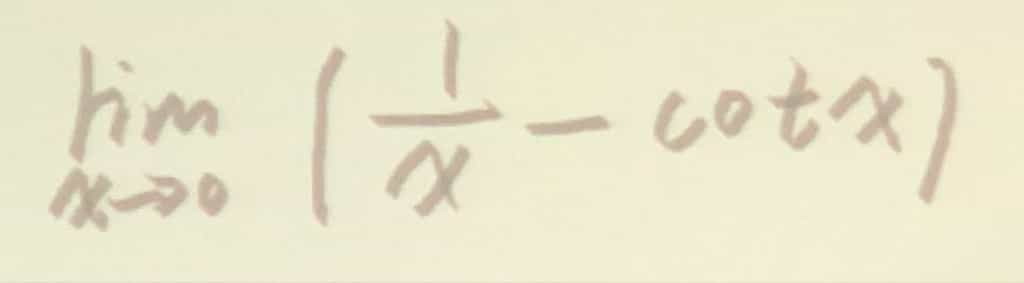 lim_{x→0} (1/x − cot x)